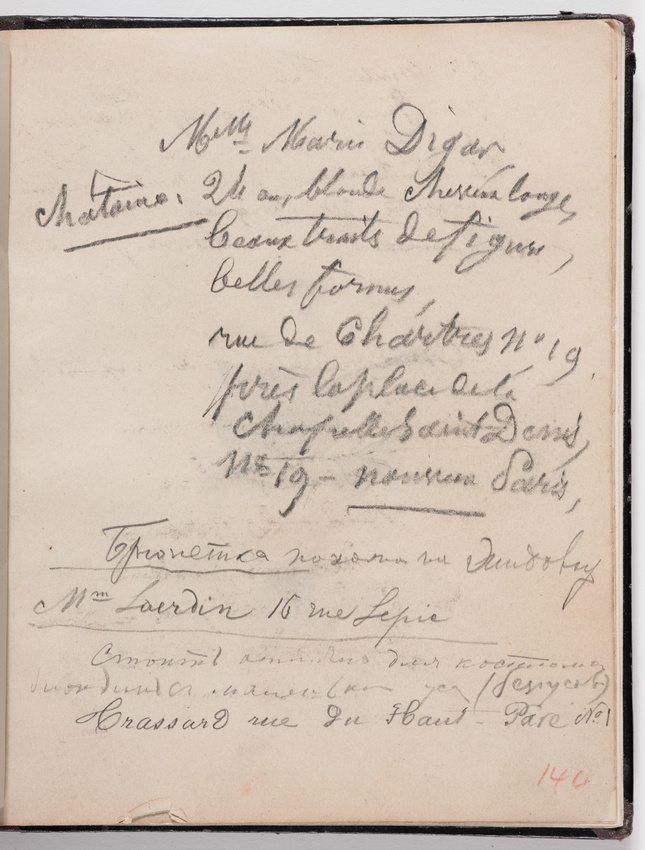 Melle Marie Digar
Chataine. 24 an, blonde cheveux longs,
beaux traits de figure,
belles formes,
rue de Chartres No 19.
près la place de la
Chapelle Saint Denis,
No 19 – nouveau Paris,
Брюнетка похожа на
Mme Laerdin 16 rue Lepic
Стоитъ для костюма
блондинъ уса
Crassard rue du Haut-Pavé No 1
146